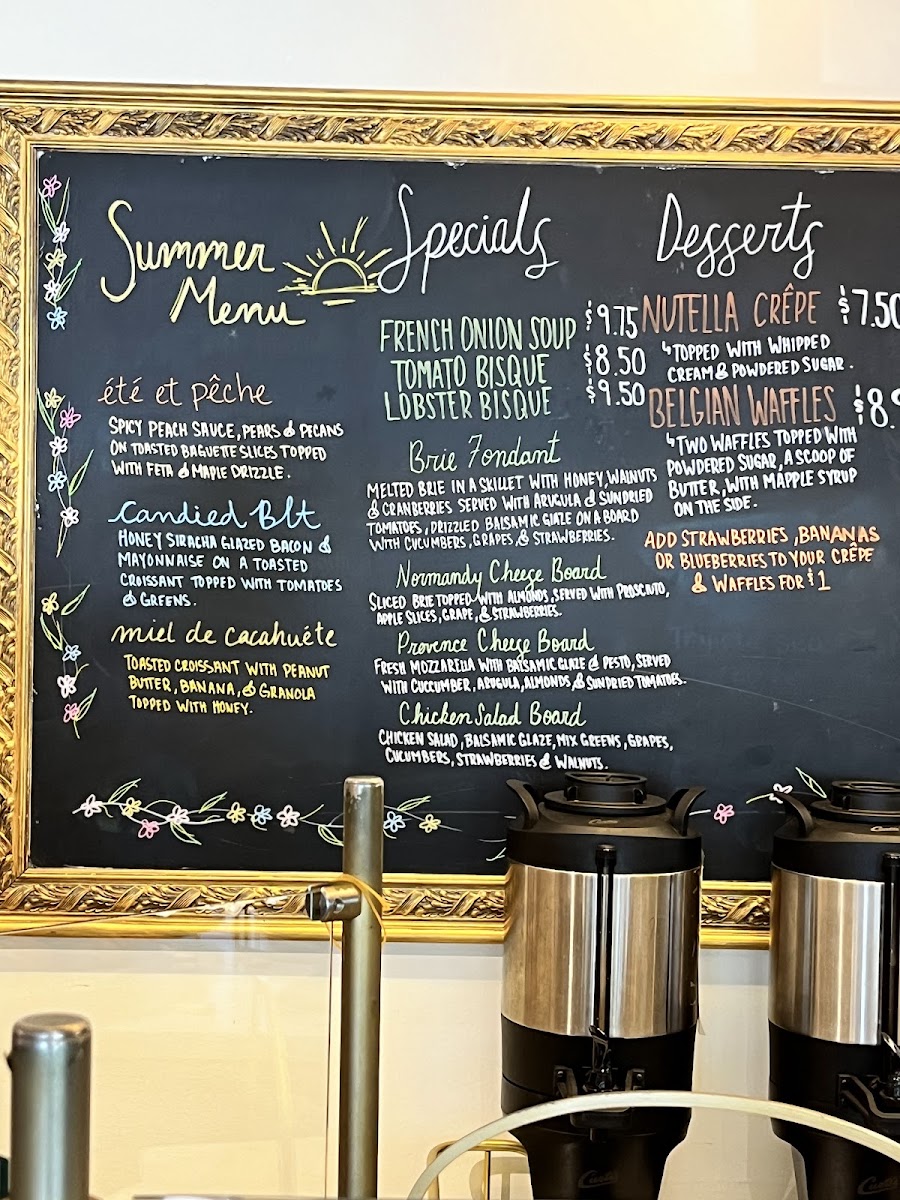 Summer
Menu
été et pêche
SPICY PEACH SAUCE, PEARS & PECANS
ON TOASTED BAGUETTE SLICES TOPPED
WITH FETA & MAPLE DRIZZLE.
Candied Blt
HONEY SIRACHA GLAZED BACON &
MAYONNAISE ON A TOASTED
CROISSANT TOPPED WITH TOMATOES
& GREENS.
miel de cacahuéte
TOASTED CROISSANT WITH PEANUT
BUTTER, BANANA, & GRANOLA
TOPPED WITH HONEY.
Specials
FRENCH ONION SOUP $9.75
TOMATO BISQUE $8.50
LOBSTER BISQUE $9.50
Brie Fondant
MELTED BRIE IN A SKILLET WITH HONEY, WALNUTS
& CRANBERRIES SERVED WITH ARUGULA & SUNDRIED
TOMATOES, DRIZZLED BALSAMIC GLAZE ON A BOARD
WITH CUCUMBERS, GRAPES, & STRAWBERRIES.
Normandy Cheese Board
SLICED BRIE TOPPED WITH ALMONDS, SERVED WITH PROSCIUTO,
APPLE SLICES, GRAPE, & STRAWBERRIES.
Provence Cheese Board
FRESH MOZZARELLA WITH BALSAMIC GLAZE & PESTO, SERVED
WITH CUCCUMBER, ARUGULA, ALMONDS, & SUNDRIED TOMATOES.
Chicken Salad Board
CHICKEN SALAD, BALSAMIC GLAZE, MIX GREENS, GRAPES,
CUCUMBERS, STRAWBERRIES & WALNUTS.
Desserts
NUTELLA CRÊPE $7.50
↳TOPPED WITH WHIPPED
CREAM & POWDERED SUGAR.
BELGIAN WAFFLES $8.
↳TWO WAFFLES TOPPED WITH
POWDERED SUGAR, A SCOOP OF
BUTTER, WITH MAPPLE SYRUP
ON THE SIDE.
ADD STRAWBERRIES, BANANAS
OR BLUEBERRIES TO YOUR CRÊPE
& WAFFLES FOR $1
Curtis
Curtis